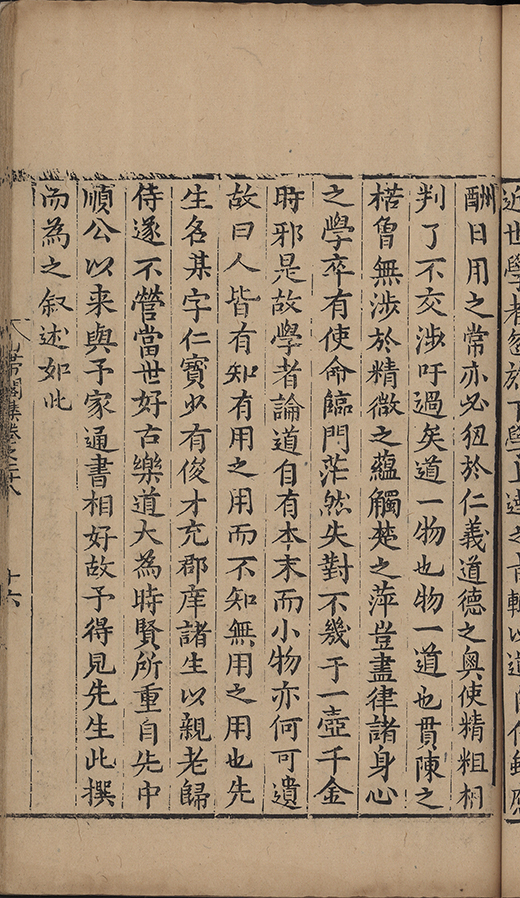 近世學者忽於下學上達之言輒以道
酬日用之常亦必狃於仁義道德之奧使精粗相
判了不交涉吁過矣道一物也物一道也貫陳之
楛魯無涉於精微之蘊觸楚之萍豈盡律諸身心
之學卒有使命臨門茫然失對不幾于一壺千金
時邪是故學者論道自有本末而小物亦何可遺
故曰人皆有知有用之用而不知無用之用也先
生名某字仁寶少有俊才充郡庠諸生以親老歸
侍遂不營當世好古樂道大為時賢所重自先中
順公以来與予家通書相好故予得見先生此撰
而為之叙述如此
集卷之二十八
十六